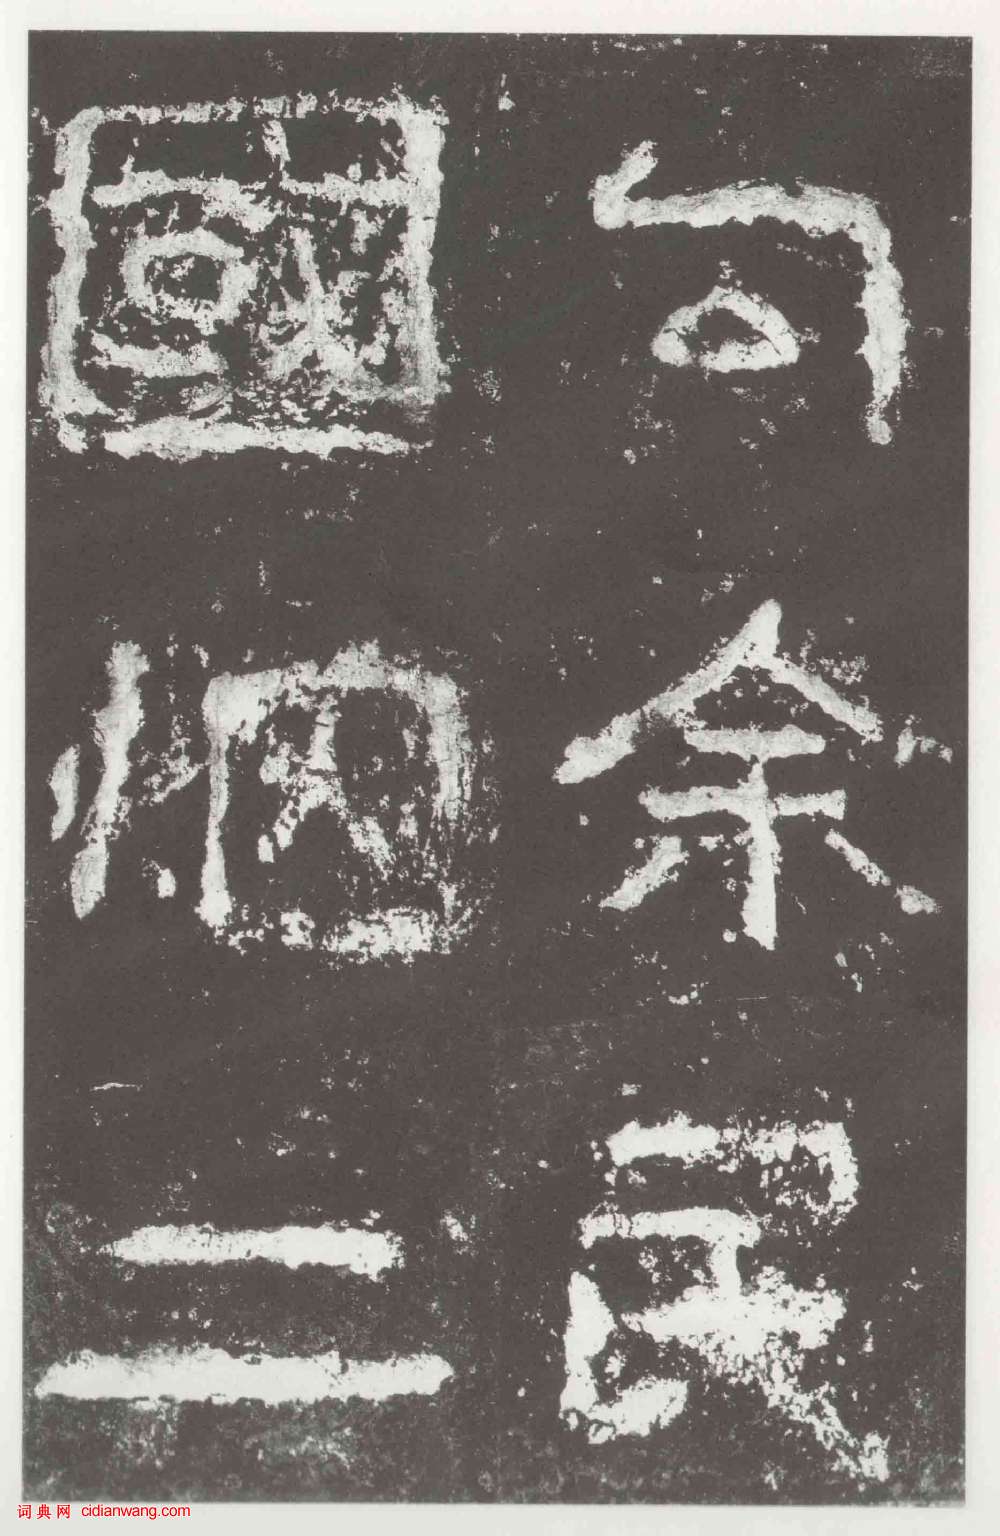 勾余民
國烟二
词典网 cidianwang.com